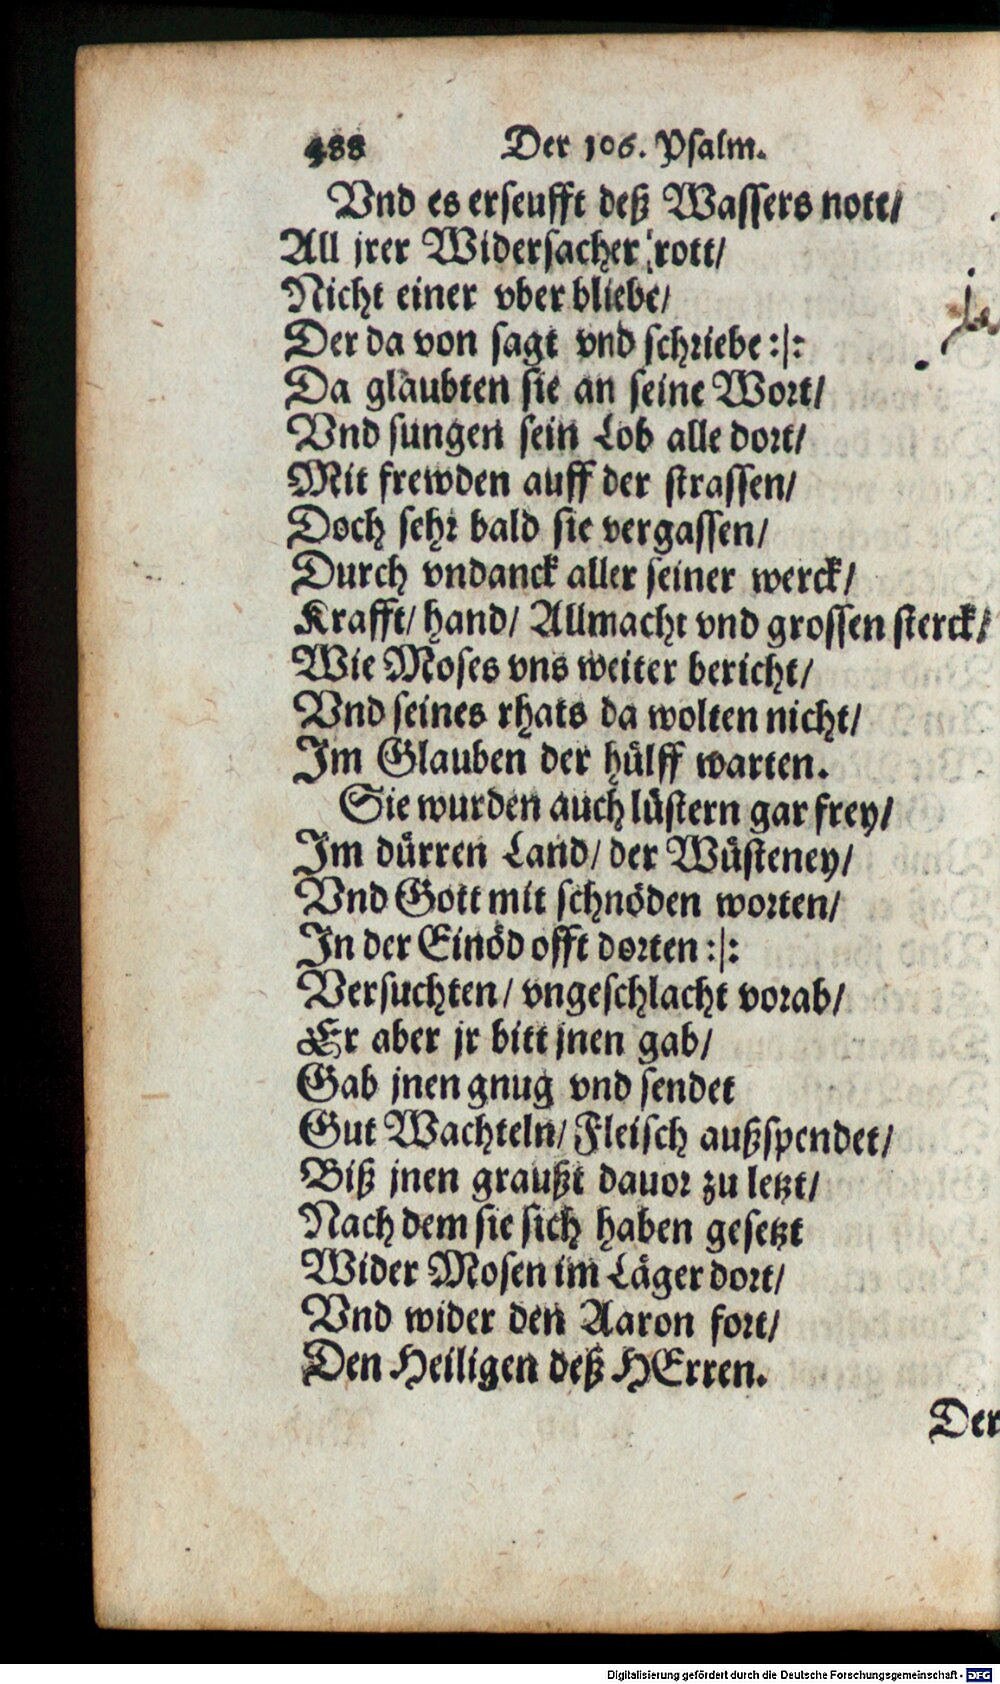 488 Der 106. Psalm.
Vnd es erseufft deß Wassers nott/
All jrer Widersacher rott/
Nicht einer vber bliebe/
Der da von sagt vnd schriebe :|:
Da glaubten sie an seine Wort/
Vnd sungen sein Lob alle dort/
Mit frewden auff der strassen/
Doch sehr bald sie vergassen/
Durch vndanck aller seiner werck/
Krafft/ hand/ Allmacht vnd grossen sterck/
Wie Moses vns weiter bericht/
Vnd seines rhats da wolten nicht/
Im Glauben der hülff warten.
Sie wurden auch lüstern gar frey/
Im dürren Land/ der Wüsteney/
Vnd Gott mit schnöden worten/
In der Einöd offt dorten :|:
Versuchten/ vngeschlacht vorab/
Er aber jr bitt jnen gab/
Gab jnen gnug vnd sendet
Gut Wachteln/ Fleisch außspendet/
Biß jnen graußt dauor zu letzt/
Nach dem sie sich haben gesetzt
Wider Mosen im Läger dort/
Vnd wider den Aaron fort/
Den Heiligen deß HErren.
Der
Digitalisierung gefördert durch die Deutsche Forschungsgemeinschaft - DFG